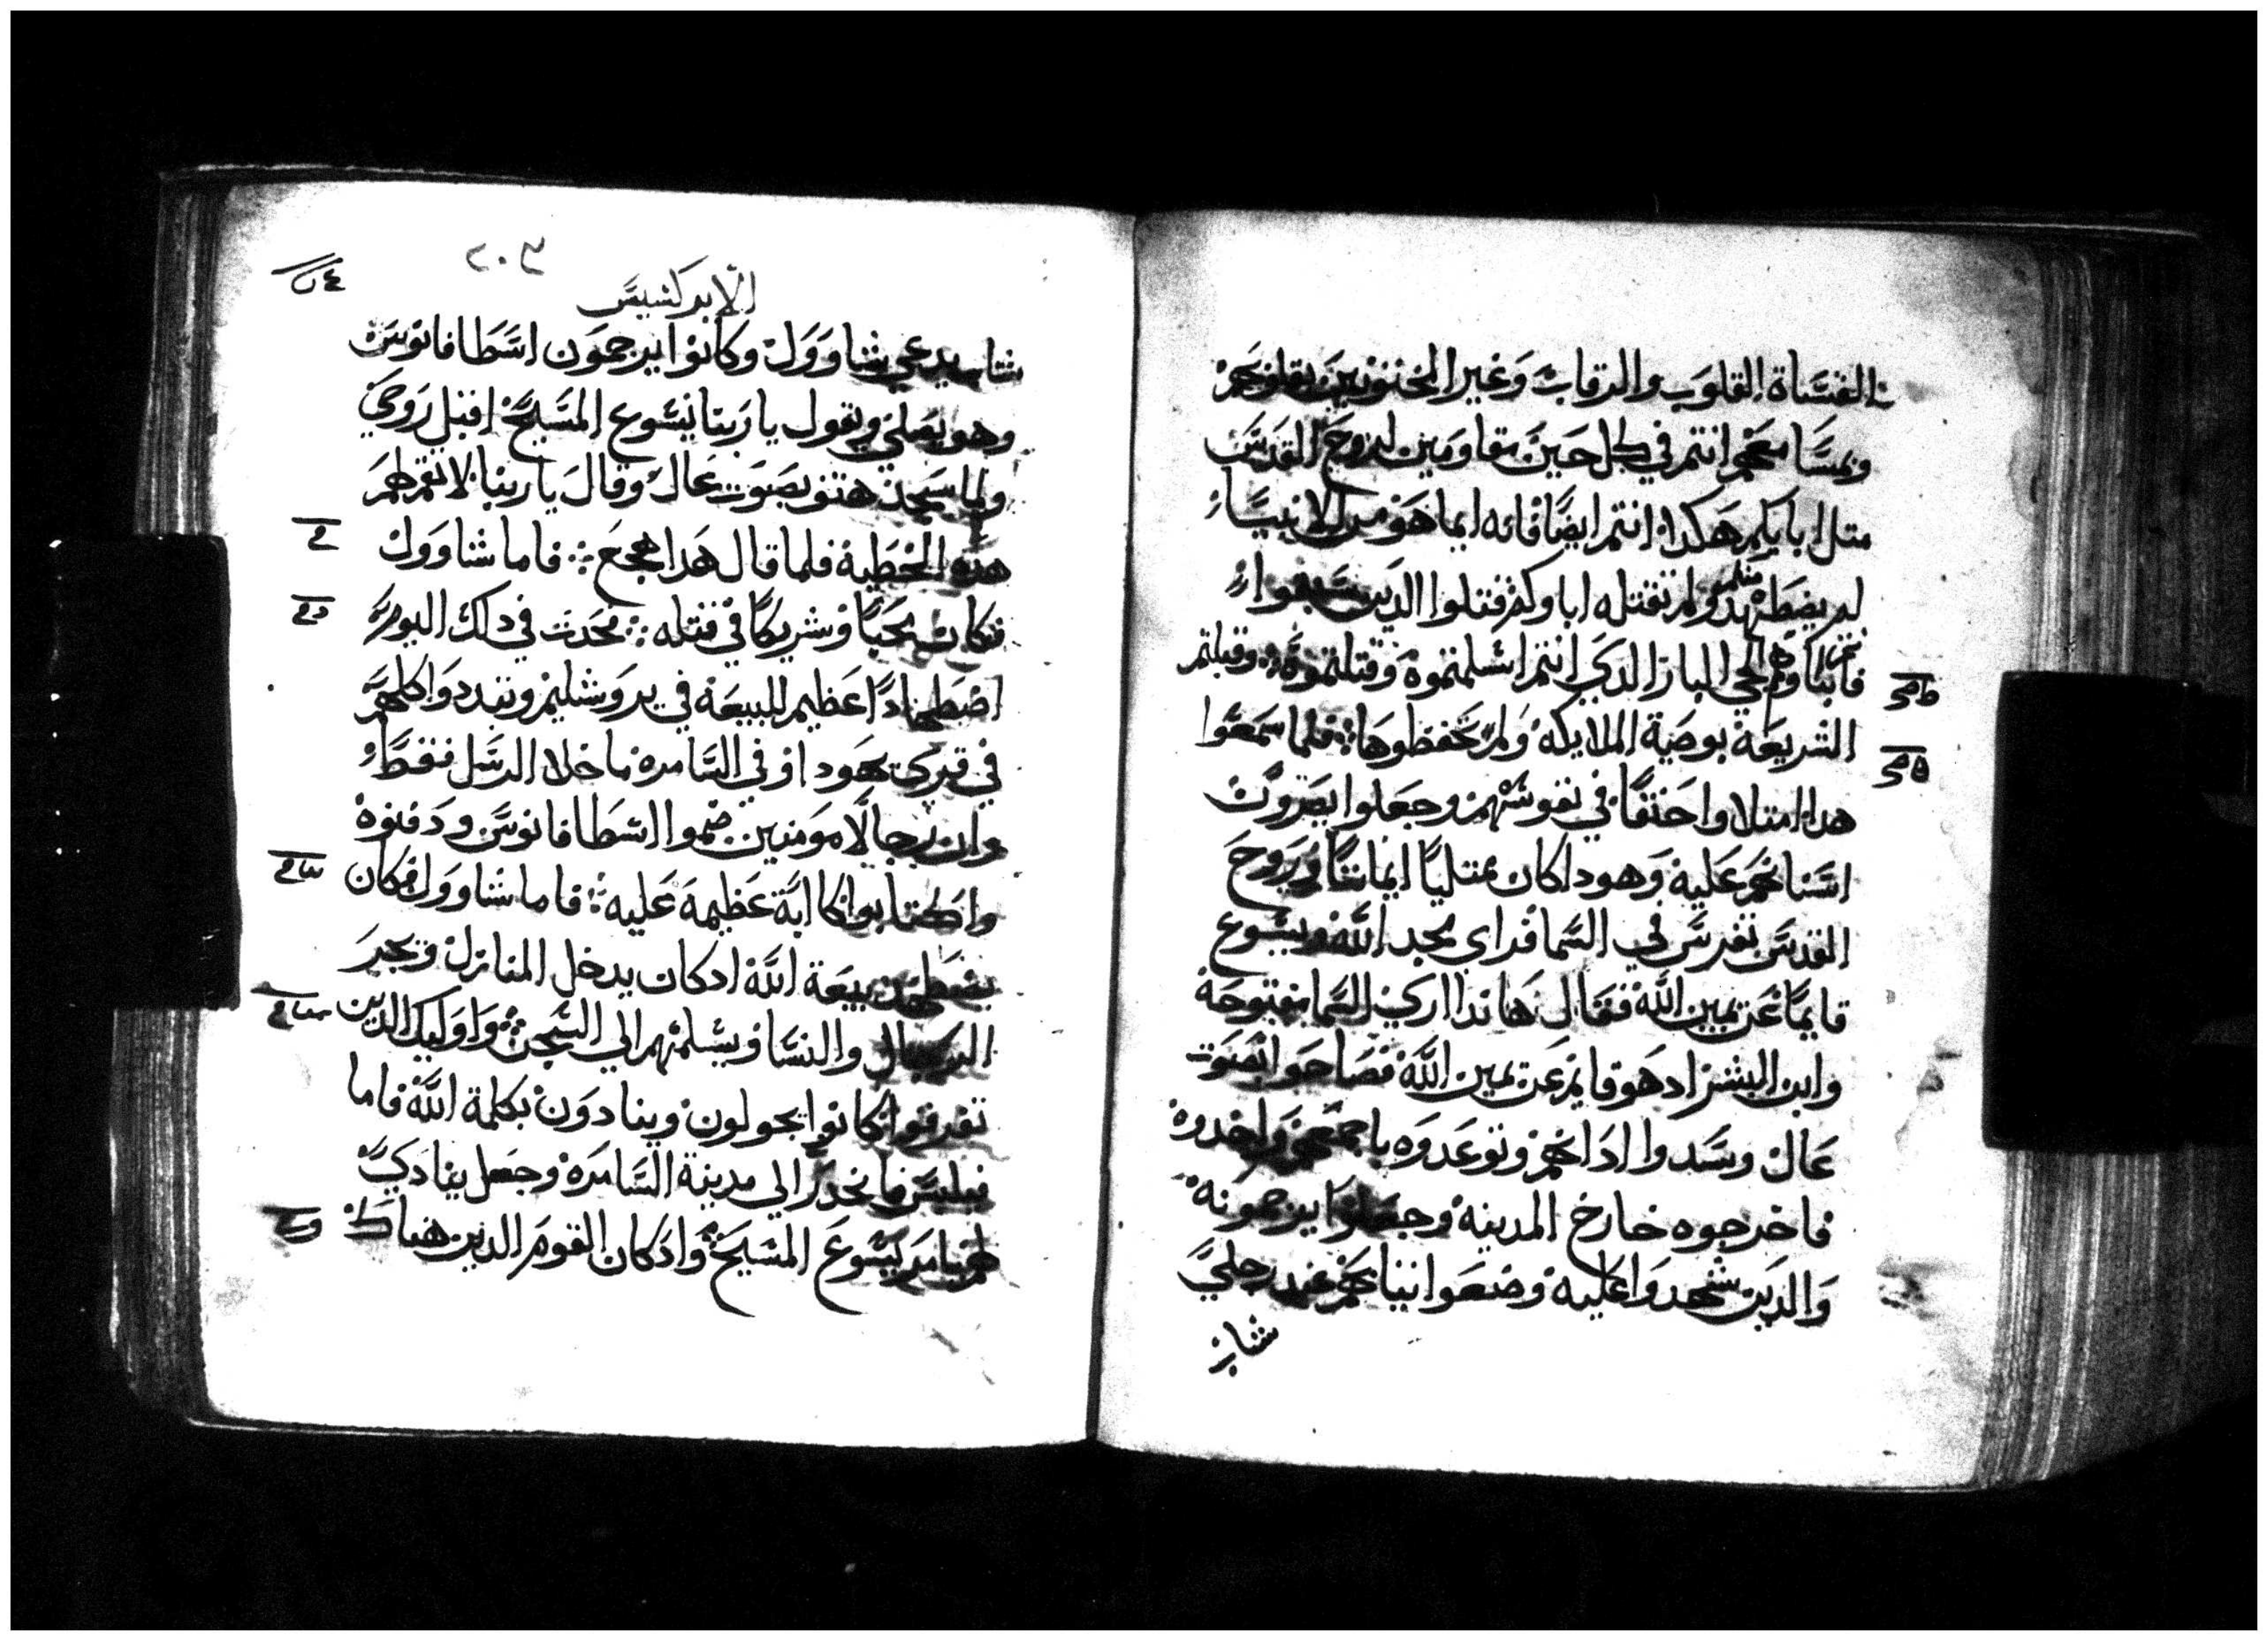 القساة القلوب والرقاب وغير المختونين بقلوبهم
وبمسامعهم انتم في كل حين مقاومين لروح القدس
متل ابايكم هكدا انتم ايضا فانه ايما هو من الانبياء
لم يضطهدوا ولم تقتله اباوكم فقتلوا الدين سبقوا
فانباوكم المجي البار الدي انتم اسلمتموه وقتلتموه وقبلتم
الشريعة بوصية الملايكه ولم تحفظوها فلما سمعوا
هدا امتلاوا حنقا في نفوسهم وجعلوا يصرون
اسنانهم عليه وهود اكان ممتليا ايمانا وروح
القدس تفرس في السما فراى مجد الله ويسوع
قايما عن يمين الله فقال هاندا ارى السما مفتوحة
وابن البشر ادهو قايم عن يمين الله فصاحوا بصوت
عال وسدوا ادانهم وتوعدوه باجمعهم واخدوه
فاخرجوه خارج المدينه وجعلوا يرجمونه
والدين شهدوا عليه وضعوا تيابهم عند رجلي
شاب
٢٠٣
الابركسيس
شاب يدعي شاوول وكانوا يرجمون اسطافانوس
وهو يصلي ويقول يا ربنا يسوع المسيح اقبل روحي
ولما سجد هتف بصوت عال وقال يا ربنا لا تقم لهم
هده الخطية فلما قال هدا هجع فاما شاوول
فكان محبا وشريكا في قتله فحدث في دلك اليوم
اضطهادا عظيم للبيعة في يروشليم وتبددوا كلهم
في قري يهودا وفي السامره ما خلا الرسل فقط
وان رجالا مومنين ضموا اسطافانوس ودفنوه
واكتابوا كابة عظيمة عليه فاما شاوول فكان
يضطهد بيعة الله ادكان يدخل المنازل ويجر
الرجال والنسا ويسلمهم الي السجن واوليك الدين
تفرقوا كانوا يجولون وينادون بكلمة الله فاما
فيلبس فانحدر الي مدينة السامره وجعل ينادي
لهم بامر يسوع المسيح وادكان القوم الدين هناك